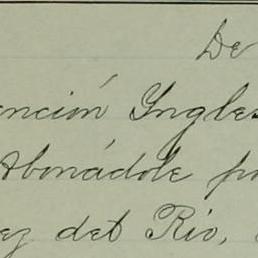 De
ención Yngles
Abonádole po
ez del Rio,